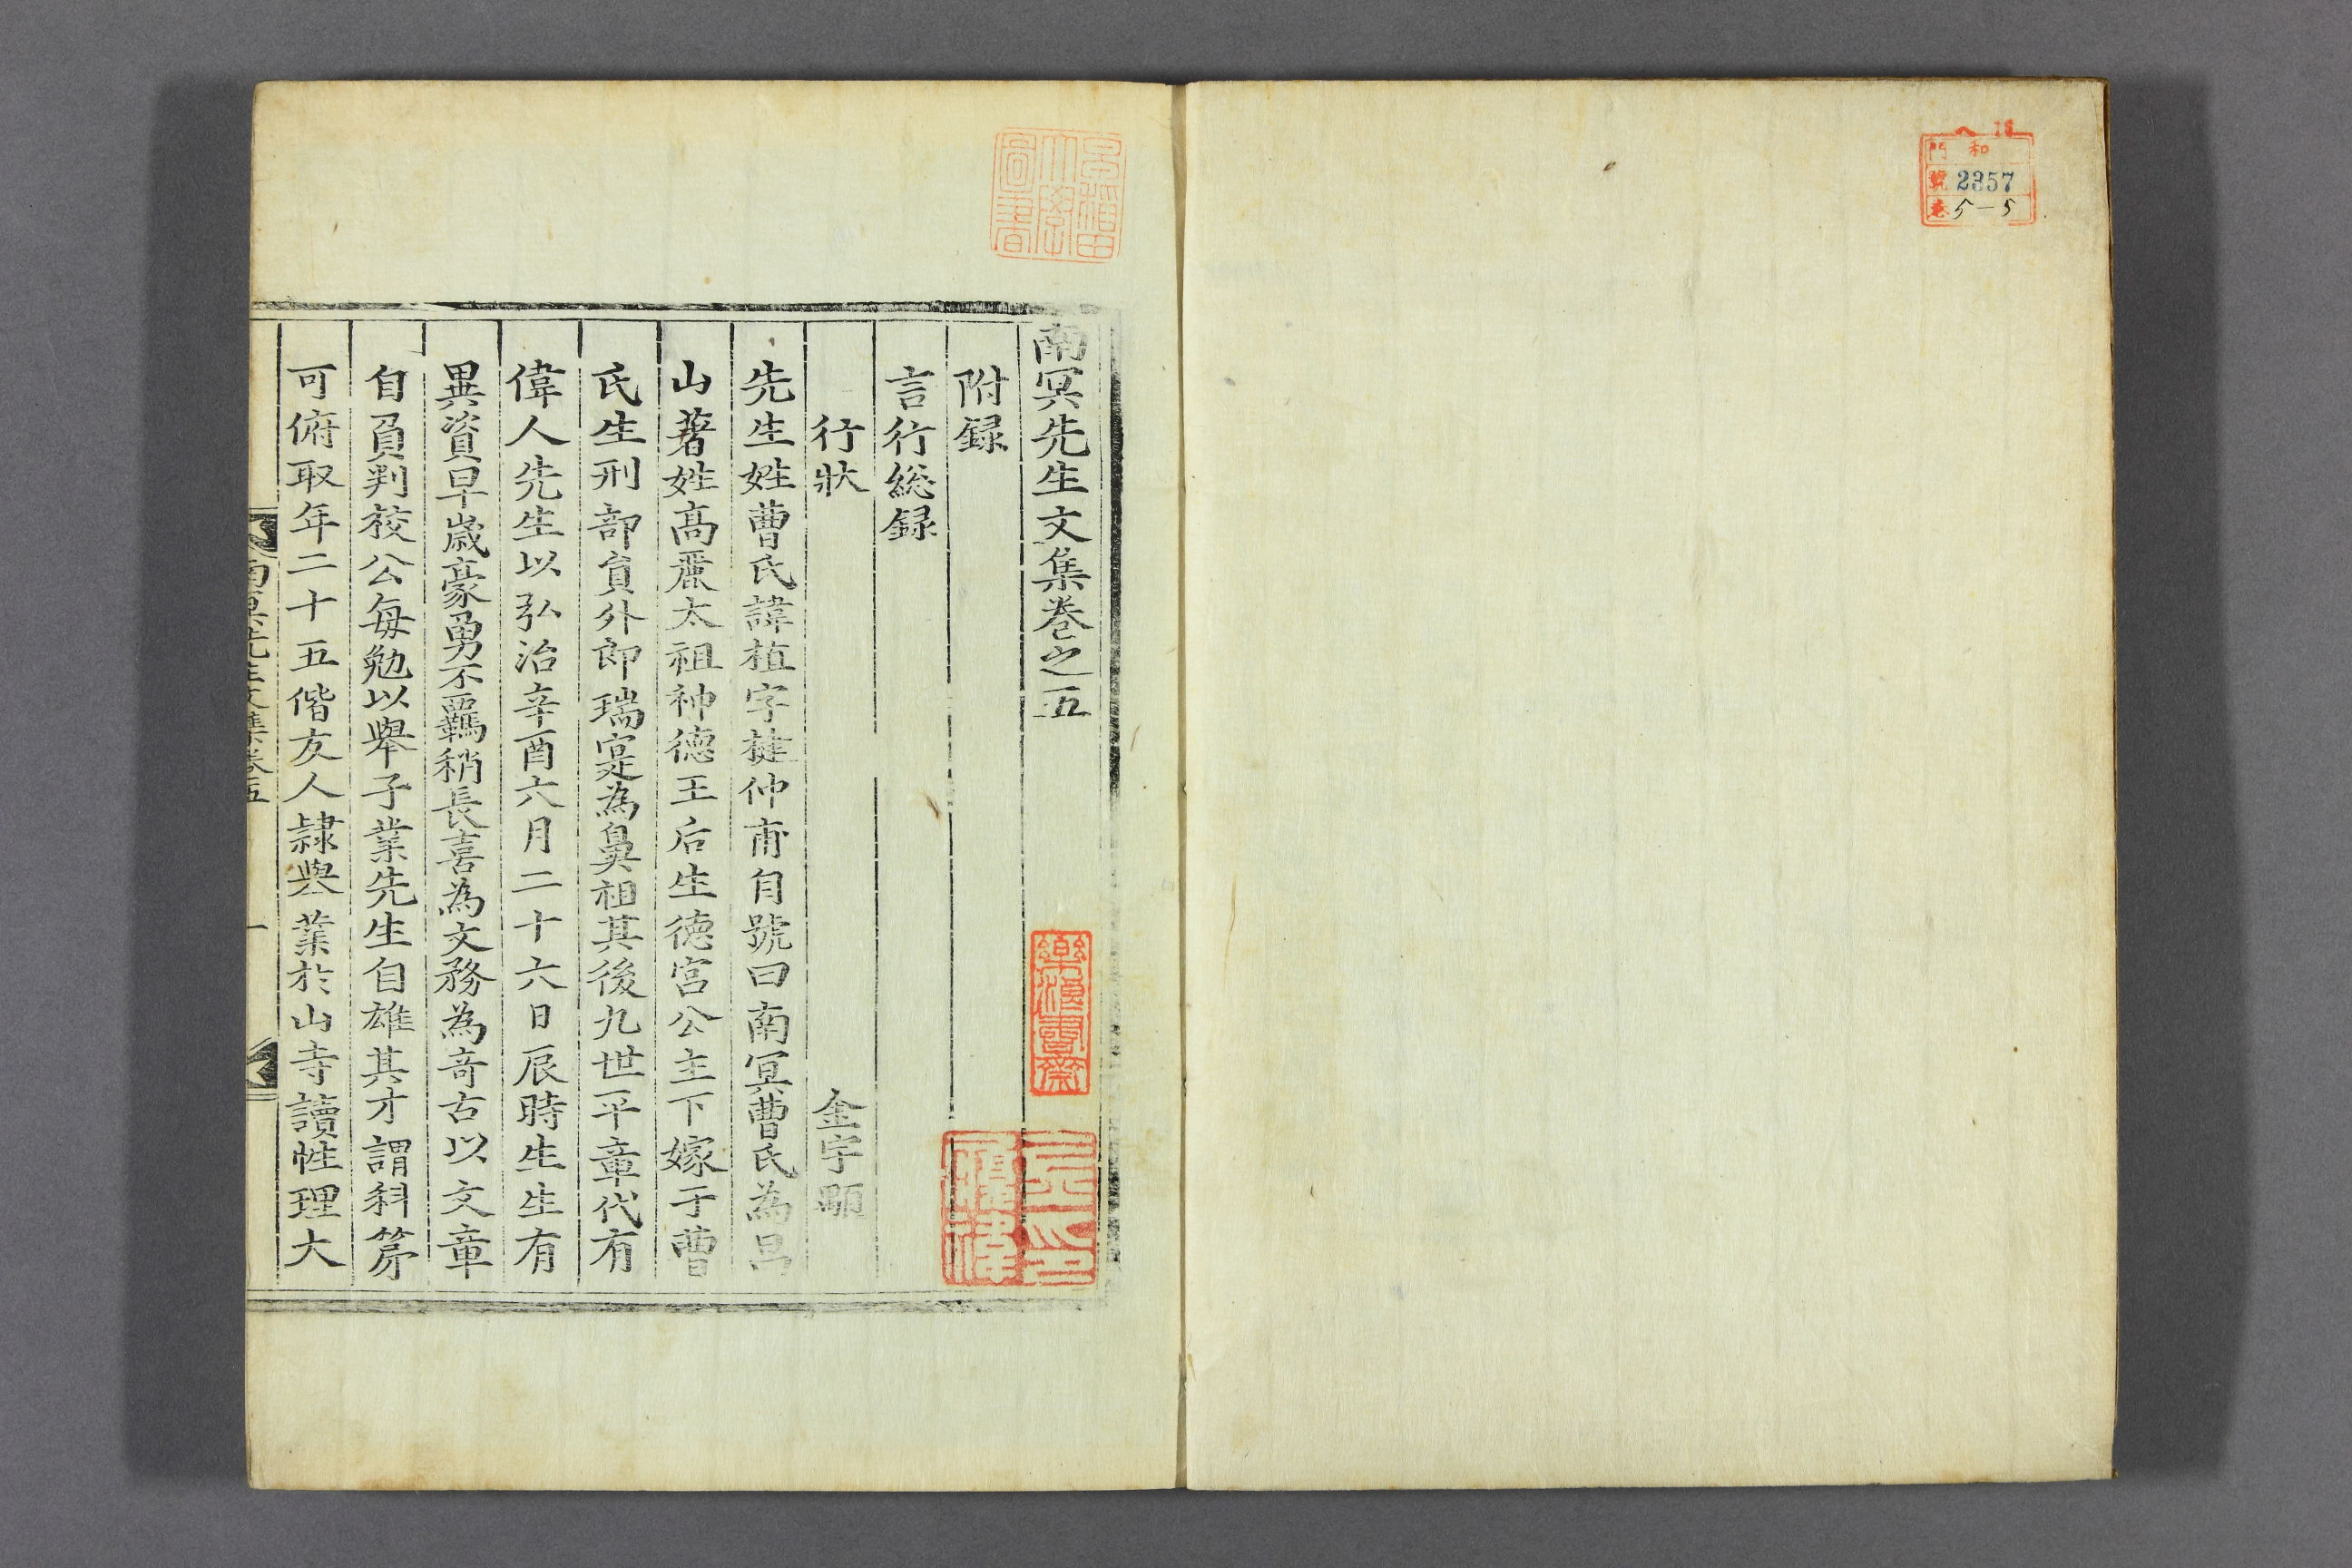 門 和
號 2357
卷 5-5
早稲田
大學
圖書
南冥先生文集卷之五
附録
言行総録
行狀 金宇顒
先生姓曹氏諱植字楗仲甫自號曰南冥曹氏為昌
山著姓高麗太祖神德王后生德宮公主下嫁于曹
氏生刑部貟外郎瑞寔為鼻祖其後九世平章代有
偉人先生以弘治辛酉六月二十六日辰時生生有
異資早歲豪勇不羈稍長喜為文務為竒古以文章
自負判校公每勉以舉子業先生自雄其才謂科第
可俯取年二十五偕友人隷舉業於山寺讀性理大
南冥先生文集卷五
一